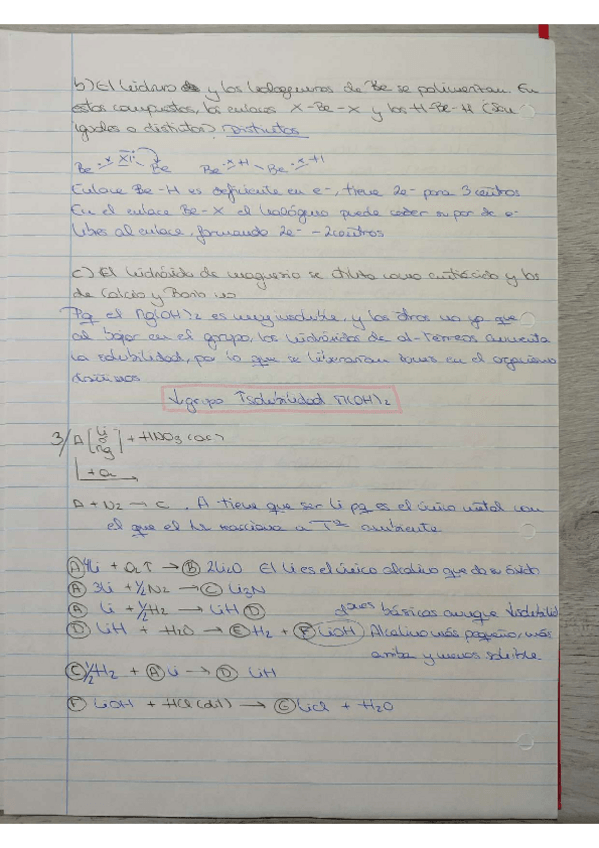 b) El hidruro de y los halogenuros de Be se polimerizan. En
estos compuestos, los enlaces X-Be-X y los H-Be-H ¿Son
iguales o distintos? Distintos
Be Be Be Be
Enlace Be-H es deficiente en e-, tiene 2e- para 3 centros
En el enlace Be-X el halógeno puede ceder su par de e-
libres al enlace, formando 2e- - 2 centros
c) El hidróxido de magnesio se utiliza como antiácido y los
de Calcio y Bario no
Pq el Mg(OH)2 es muy insoluble, y los otros no ya que
al bajar en el grupo, los hidróxidos de al-térreos aumenta
la solubilidad, por lo que se liberarían iones en el organismo
↓grupo ↑solubilidad M(OH)2
3/ A [Li o Mg] + HNO3 (ac)
+ O2
A + N2 → C. A tiene que ser Li pq es el único metal con
el que el N2 reacciona a Tª ambiente
(A) 4Li + O2 ↑ → (B) 2Li2O El Li es el único alcalino que da su óxido
(A) 3Li + 1/2 N2 → (C) Li3N
(A) Li + 1/2 H2 → LiH (D)
(D) LiH + H2O → (E) H2 + (F) LiOH
básicas aunque ↓solubilidad
Alcalino más pequeño, más
arriba y menos soluble.
(C) 1/2 H2 + (A) Li → (D) LiH
(F) LiOH + HCl (dil) → (G) LiCl + H2O